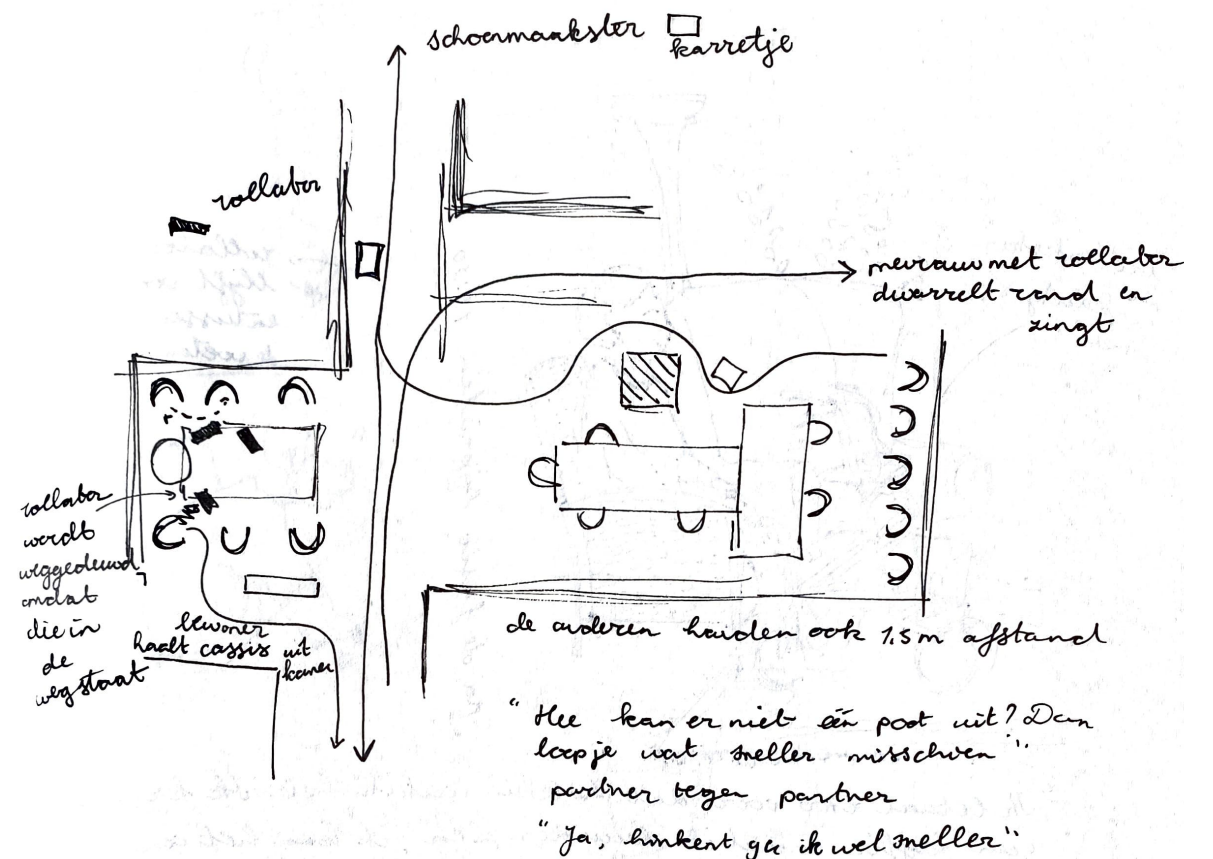 schoenmaakster
karretje
rollator
mevrouw met rollator
dwarrelt rond en
zingt
rollator
wordt
weggeduwd
omdat
die in
de
weg staat
bewoner
haalt cassis uit
kamer
de anderen houden ook 1.5 m afstand
"Hee kan er niet één poot uit? Dan
loop je wat sneller misschien".
partner tegen partner
"Ja, hinkent ga ik wel sneller"